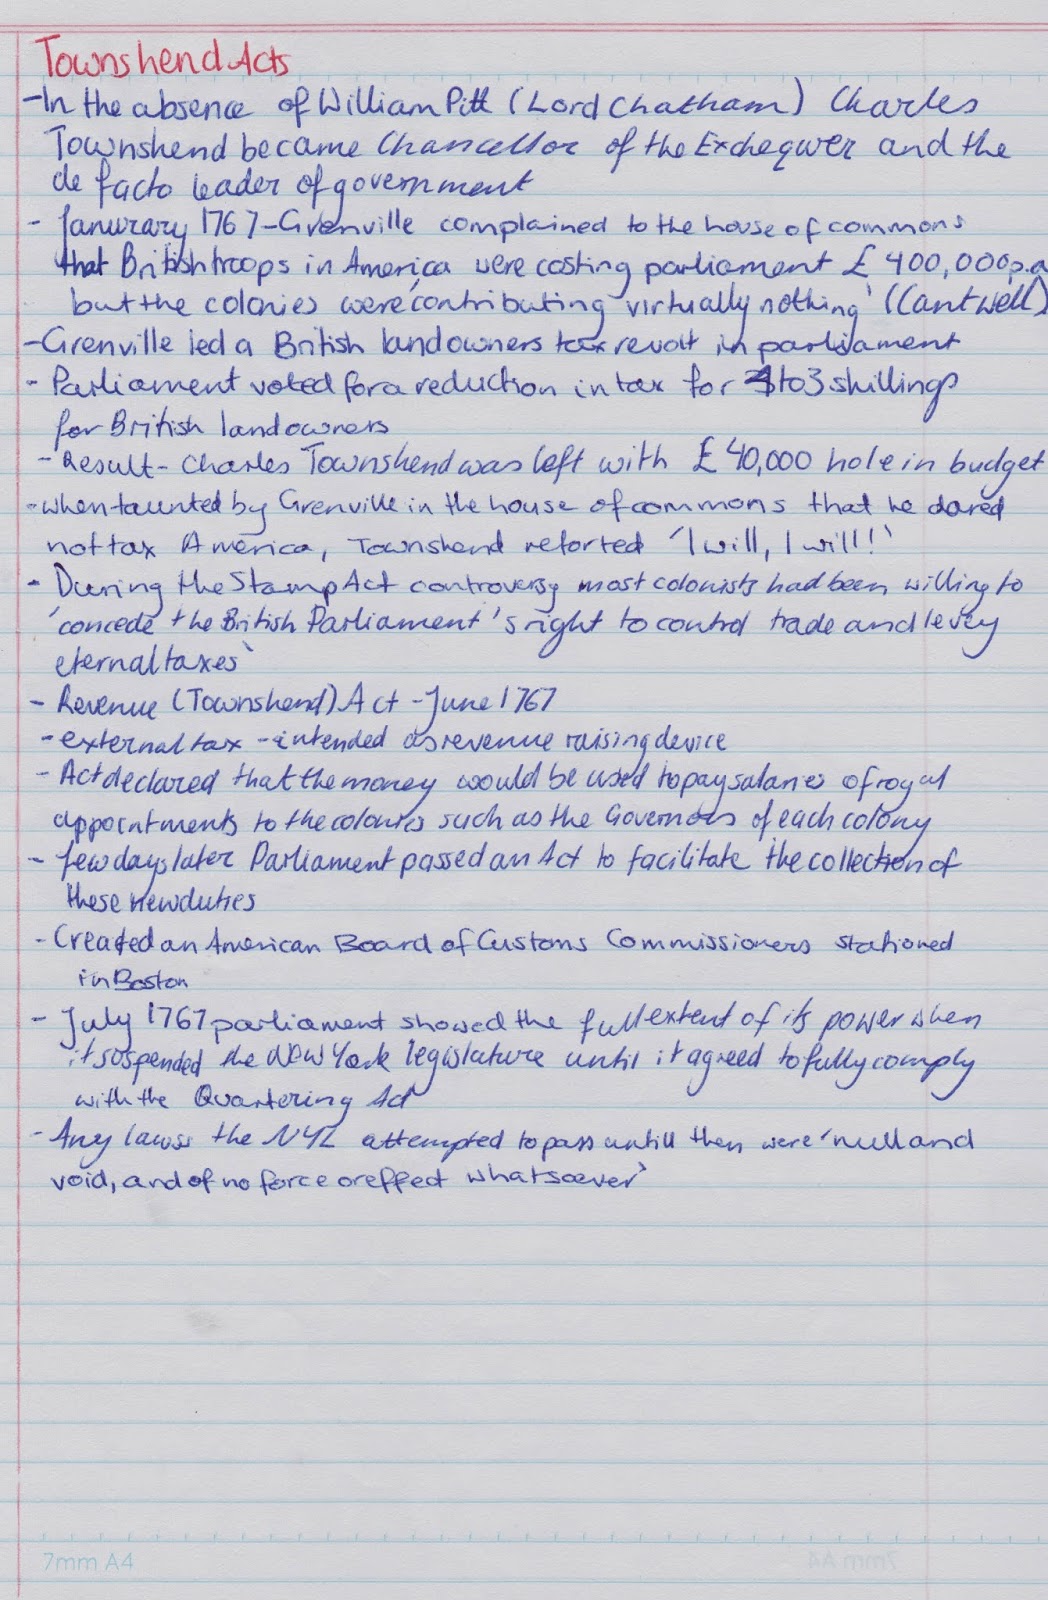 Townshend Acts
- In the absence of William Pitt (Lord Chatham) Charles
Townshend became Chancellor of the Exchequer and the
de facto leader of government
- Janurary 1767 - Grenville complained to the house of commons
that British troops in America were costing parliament £400,000 p.a
but the colonies were 'contributing virtually nothing' (Cantwell)
- Grenville led a British landowners tax revolt in parliament
- Parliament voted for a reduction in tax for 4 to 3 shillings
for British landowners
- Result - Charles Townshend was left with £40,000 hole in budget
- when taunted by Grenville in the house of commons that he dared
not tax America, Townshend retorted 'I will, I will!'
- During the Stamp Act controversy most colonists had been willing to
'concede the British Parliament's right to control trade and levey
eternal taxes'
- Revenue (Townshend) Act - June 1767
- external tax - intended as revenue raising device
- Act declared that the money would be used to pay salaries of royal
appointments to the colonies such as the Governors of each colony
- few days later Parliament passed an Act to facilitate the collection of
these new duties
- Created an American Board of Customs Commissioners stationed
in Boston
- July 1767 parliament showed the full extent of its power when
it suspended the New York legislature until it agreed to fully comply
with the Quartering Act
- Any laws the NYL attempted to pass untill then were 'null and
void, and of no force or effect whatsoever'
7mm A4